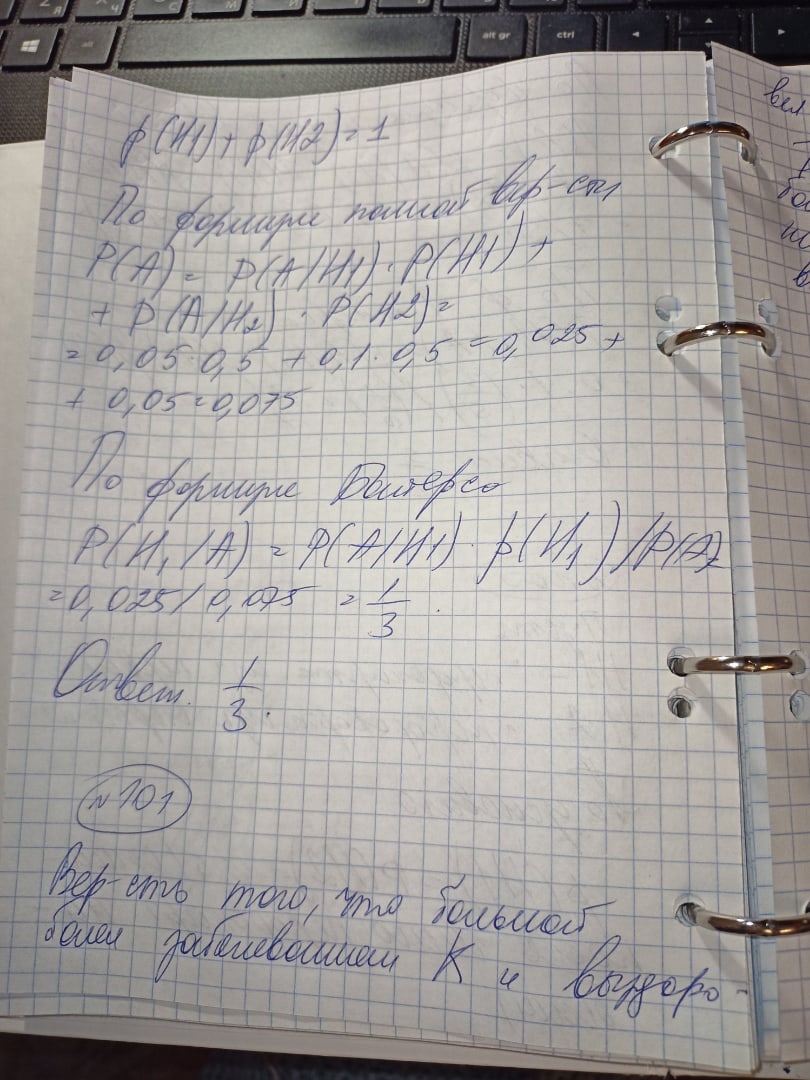 p(H1) + p(H2) = 1
По формуле полной вер-сти
P(A) = P(A/H1) · P(H1) +
+ P(A/H2) · P(H2) =
= 0,05 · 0,5 + 0,1 · 0,5 = 0,025 +
+ 0,05 = 0,075
По формуле
P(H1/A) = P(A/H1) · p(H1) / P(A) =
= 0,025 / 0,075 = 1/3.
Ответ. 1/3.
№101
Вер-сть того, что больной
болел заболеванием К и выздоро-
alt
alt gr
ctrl